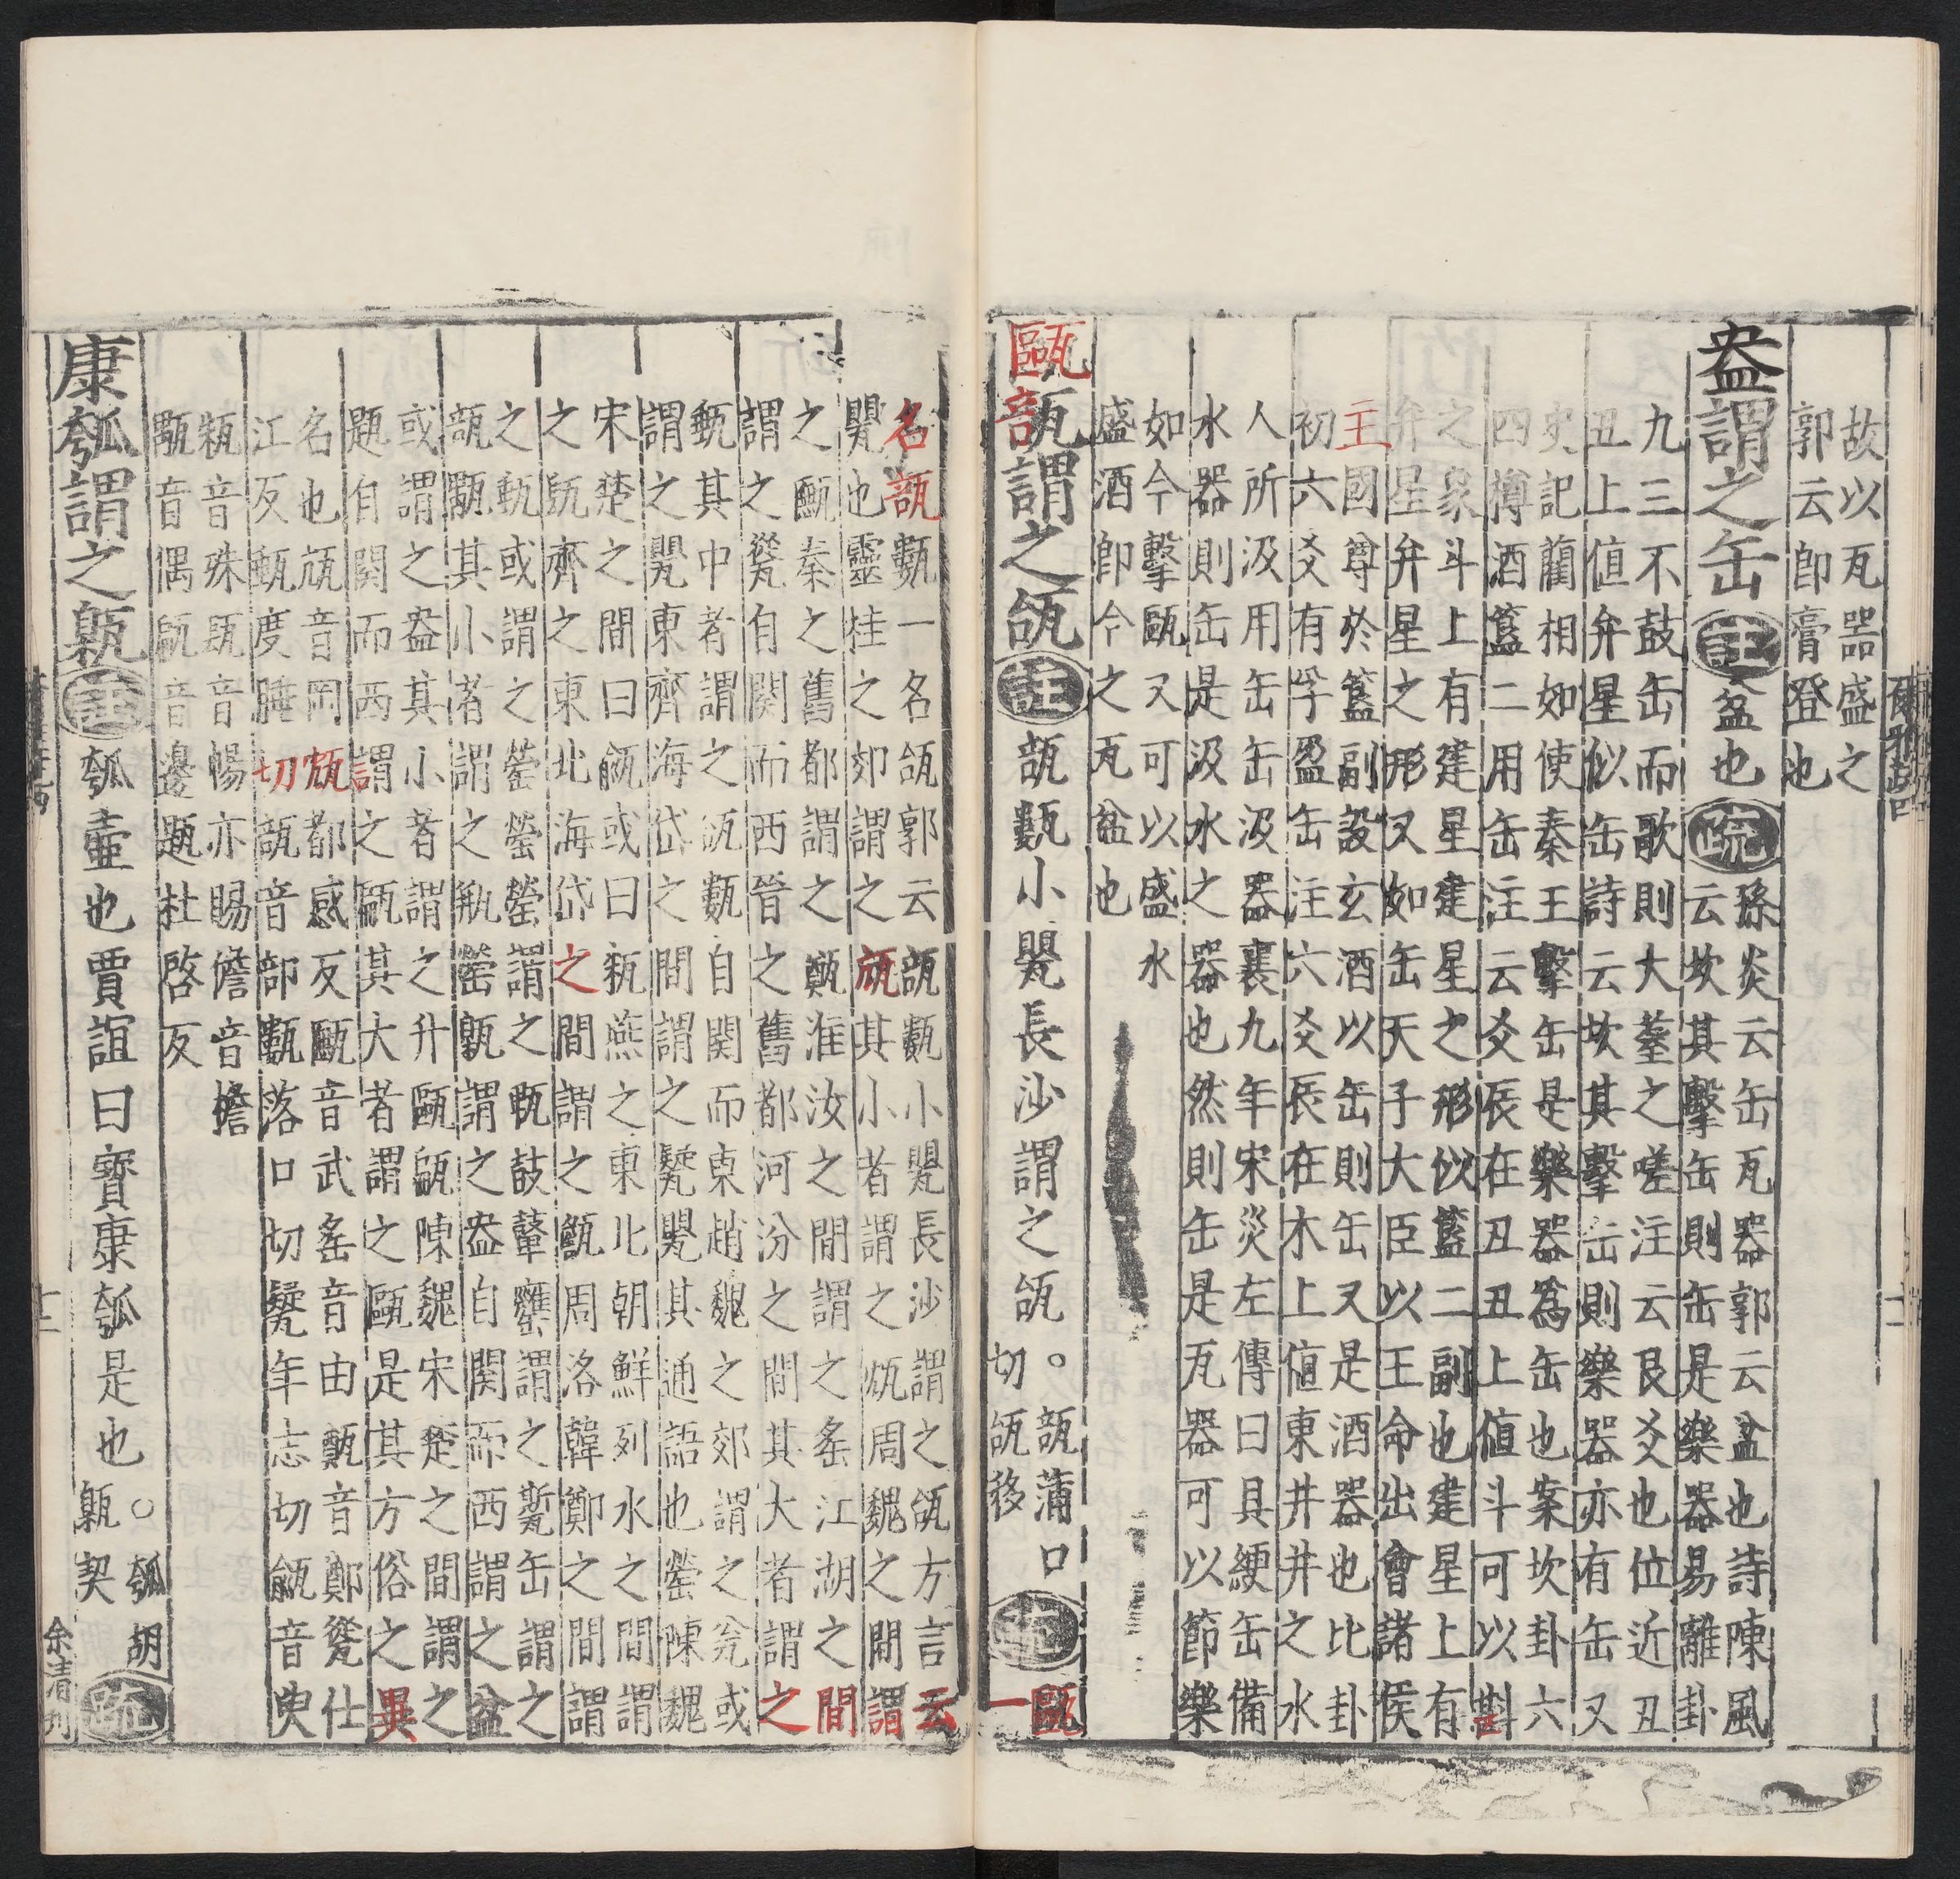 故以瓦器盛之
郭云即膏登也
盎謂之缶 註 盆也 疏 孫炎云缶瓦器郭云盆也詩陳風
云坎其擊缶則缶是樂器易離卦
九三不鼓缶而歌則大耋之嗟注云艮爻也位近丑
丑上值弁星似缶詩云坎其擊缶則樂器亦有缶又
史記藺相如使秦王擊缶是樂器為缶也案坎卦六
四樽酒簋二用缶注云爻辰在丑丑上值斗可以斟
之象斗上有建星建星之形似簋二副也建星上有
弁星弁星之形又如缶天子大臣以王命出會諸侯
主國尊於簋副設玄酒以缶則缶又是酒器也比卦
初六爻有孚盈缶注六爻辰在木上值東井井之水
人所汲用缶缶汲器襄九年宋災左傳曰具綆缶備
水器則缶是汲水之器也然則缶是瓦器可以節樂
如今擊甌又可以盛水
盛酒即今之瓦盆也
甌瓿謂之瓵 註 瓿甊小甖長沙謂之瓵。瓿蒲口
切瓵移 疏 甌
一
名瓿甊一名瓵郭云瓿甊小甖長沙謂之瓵方言云
甖也靈桂之郊謂之瓬其小者謂之瓭周魏之間謂
之甌秦之舊都謂之甄淮汝之間謂之䍃江湖之間
謂之㼧自關而西晉之舊都河汾之間其大者謂之
甀其中者謂之瓿甊自關而東趙魏之郊謂之瓮或
謂之甖東齊海岱之間謂之甖其通語也罃陳魏
宋楚之間曰㼶或曰㼡燕之東北朝鮮列水之間謂
之瓺齊之東北海岱之間謂之周洛韓鄭之間謂
之甀或謂之罃罃謂之甀謂之缶謂之
瓿其小者謂之瓶罃甈謂之盎自關而西謂之盆
或謂之盎其小者謂之升甌甂陳魏宋楚之間謂之
題自關而西謂之甂其大者謂之甌是其方俗之異
名也瓬音岡瓭都感反甌音武䍃音由甄音鄭㼧仕
江反甀度睡切瓿音部甊落口切年志切㼶音臾
㼡音殊瓺音暢亦賜儋音擔
音偶甂音邊題杜啓反
康瓠謂之甈 註 瓠壺也賈誼曰寶康瓠是也○瓠胡
甈契 疏
十二
余清刊